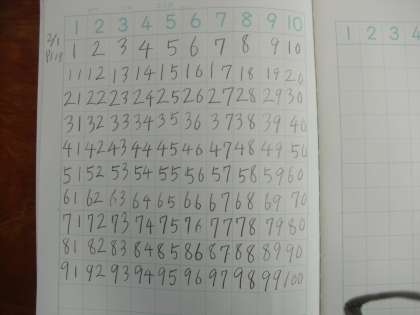 1 2 3 4 5 6 7 8 9 10
1 2 3 4 5 6 7 8 9 10
11 12 13 14 15 16 17 18 19 20
21 22 23 24 25 26 27 28 29 30
31 32 33 34 35 36 37 38 39 40
41 42 43 44 45 46 47 48 49 50
51 52 53 54 55 56 57 58 59 60
61 62 63 64 65 66 67 68 69 70
71 72 73 74 75 76 77 78 79 80
81 82 83 84 85 86 87 88 89 90
91 92 93 94 95 96 97 98 99 100
1 2 3 4